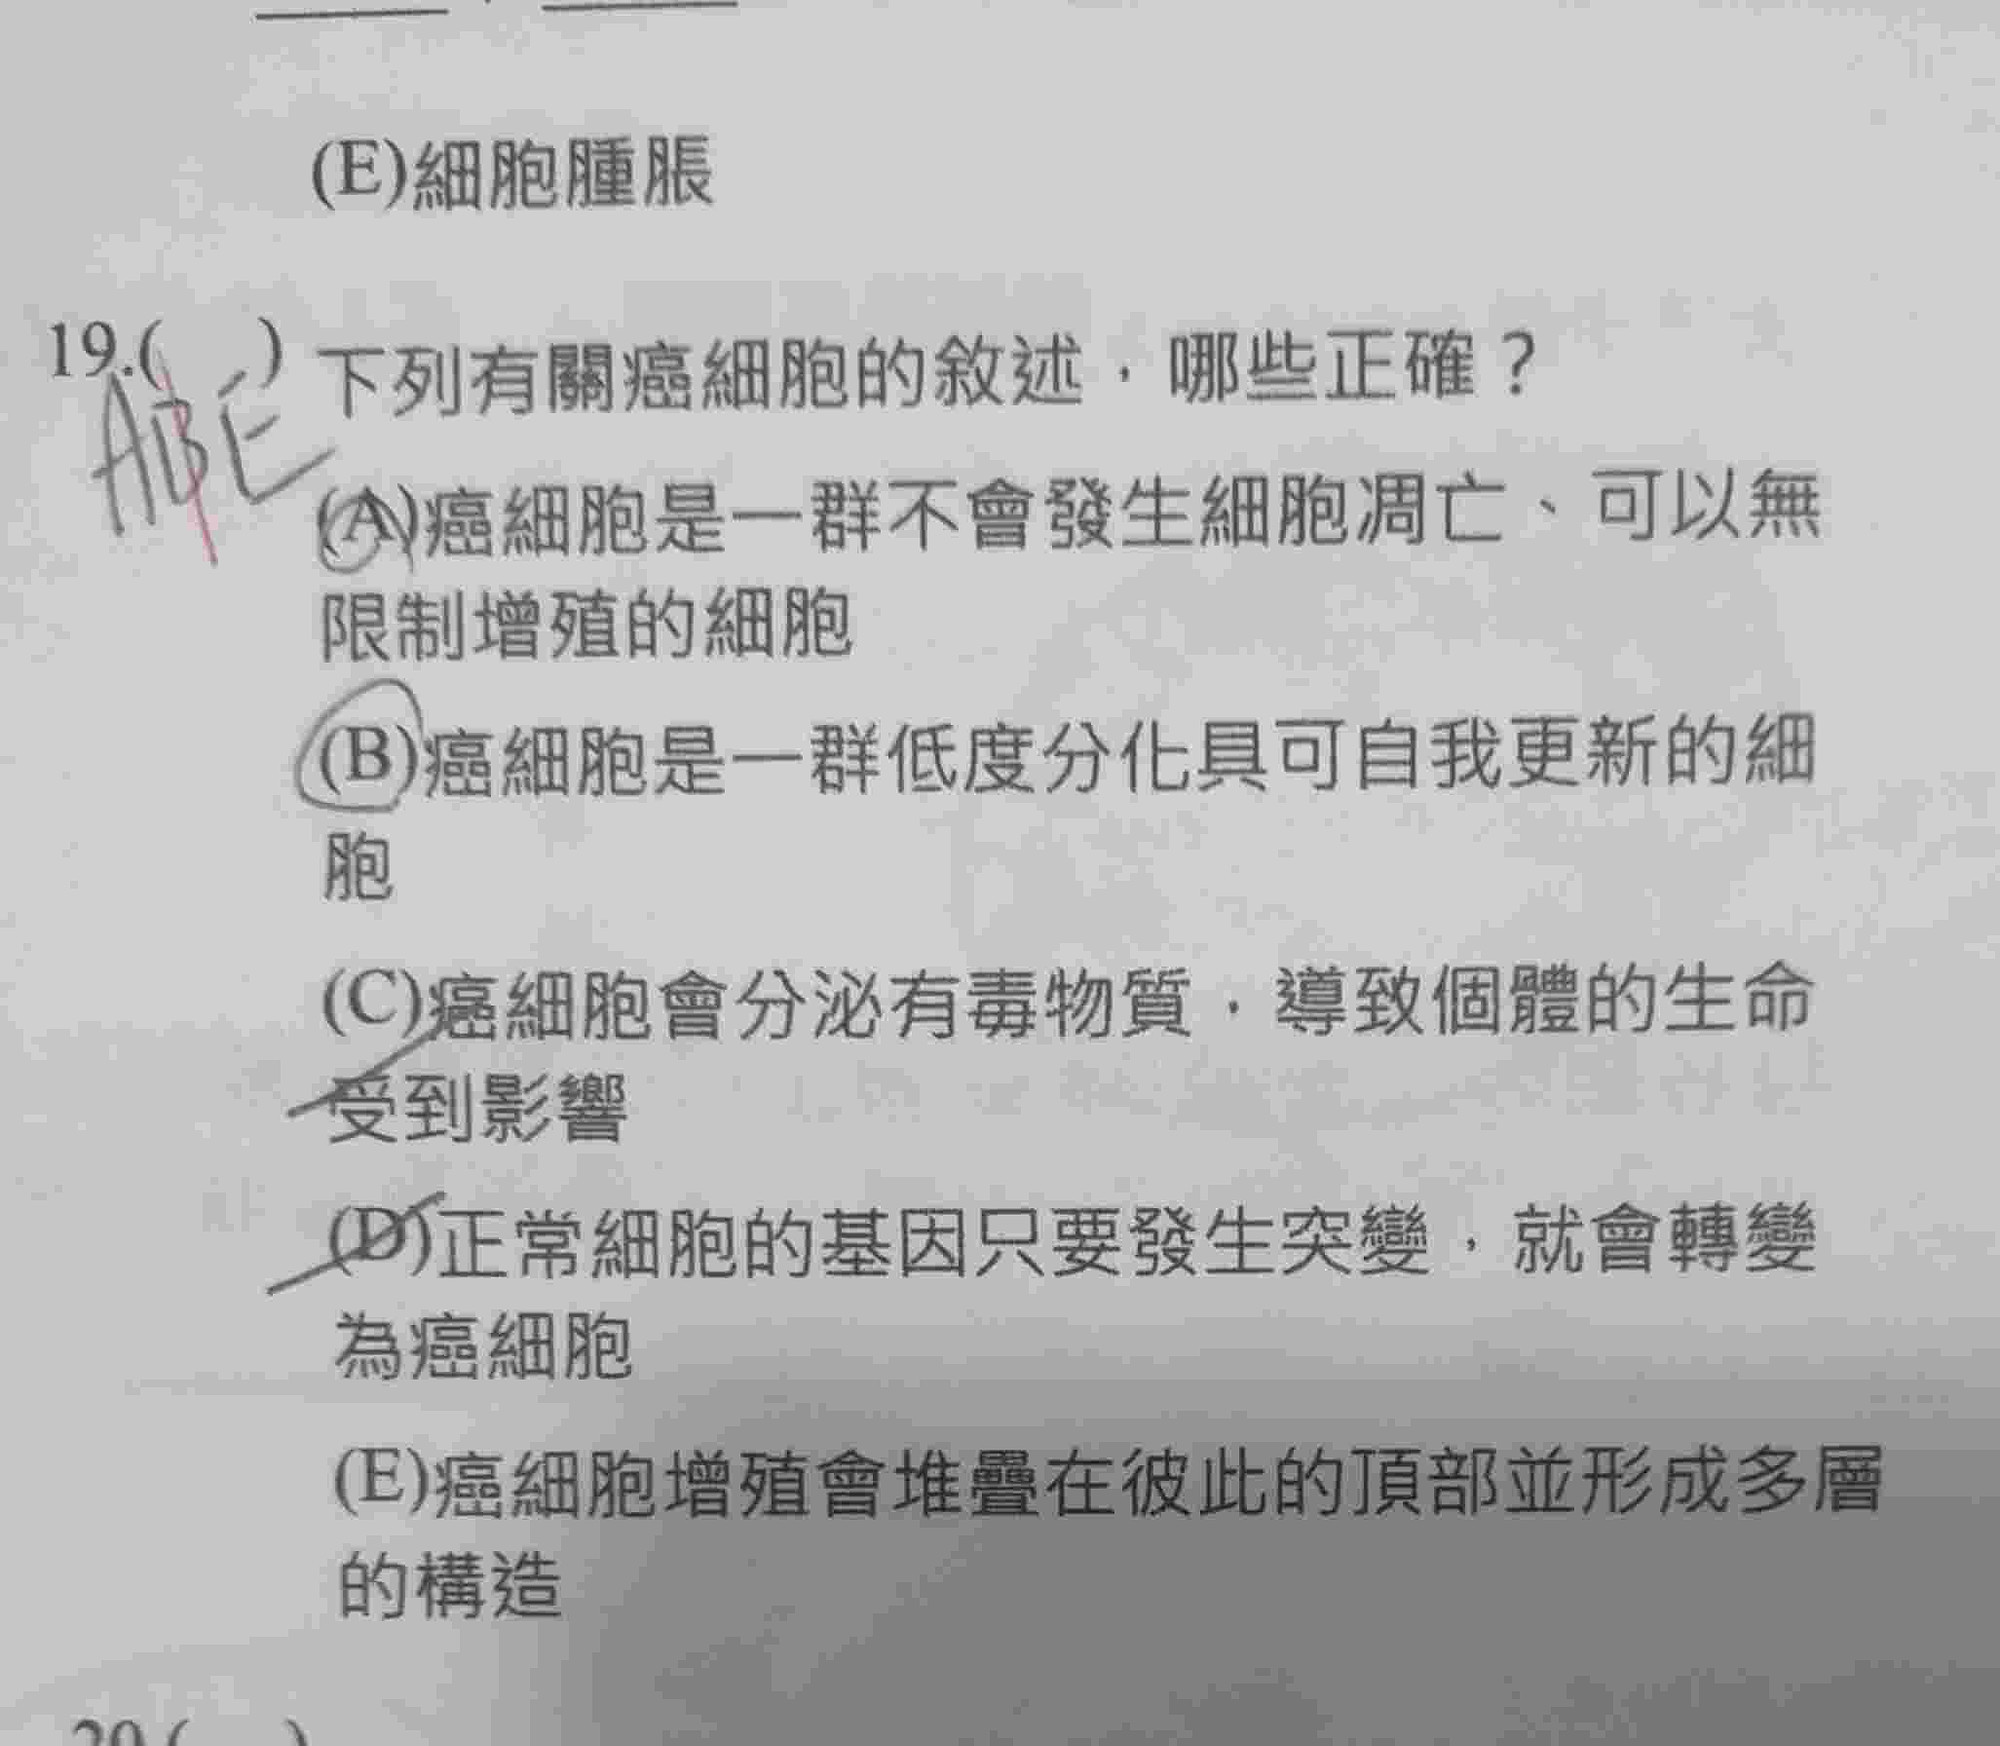 (E)細胞腫脹
19.( ) 下列有關癌細胞的敘述，哪些正確？
ABE
(A)癌細胞是一群不會發生細胞凋亡、可以無
限制增殖的細胞
(B)癌細胞是一群低度分化具可自我更新的細
胞
(C)癌細胞會分泌有毒物質，導致個體的生命
受到影響
(D)正常細胞的基因只要發生突變，就會轉變
為癌細胞
(E)癌細胞增殖會堆疊在彼此的頂部並形成多層
的構造
20.( )